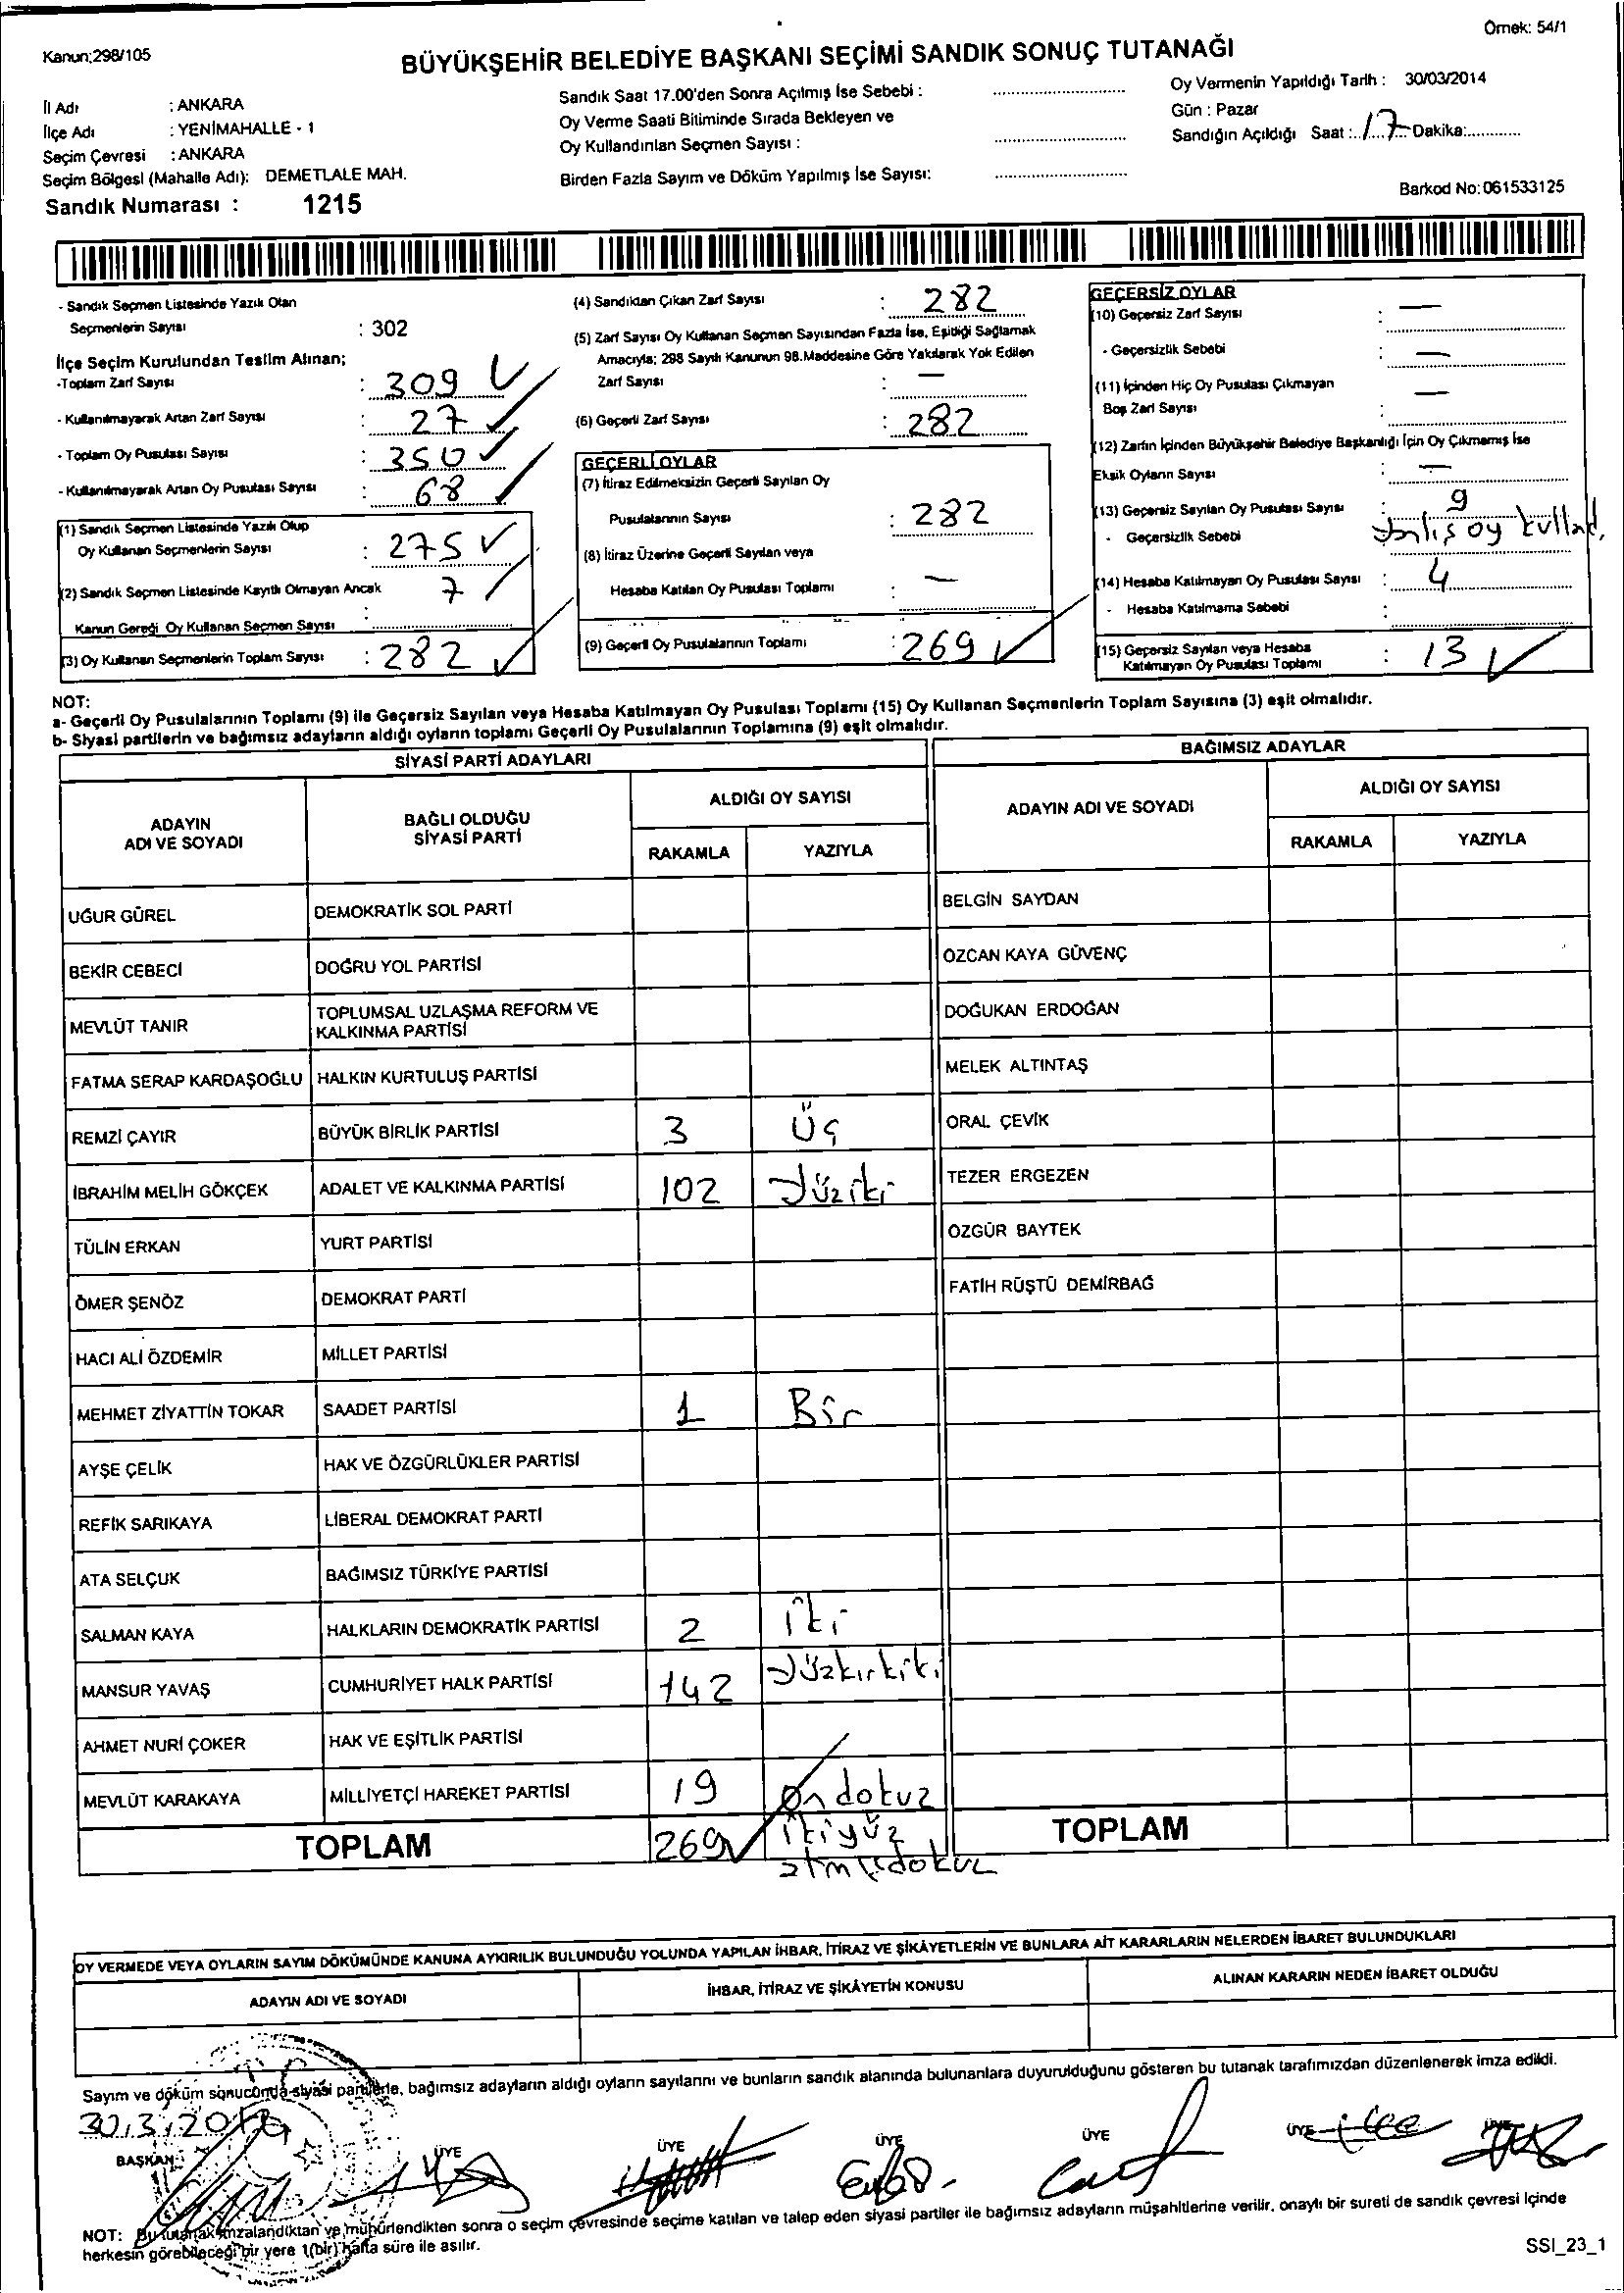 Örnek: 54/1
Kanun;298/105
BÜYÜKŞEHİR BELEDİYE BAŞKANI SEÇİMİ SANDIK SONUÇ TUTANAĞI
İl Adı : ANKARA
İlçe Adı : YENİMAHALLE - 1
Seçim Çevresi : ANKARA
Seçim Bölgesi (Mahalle Adı): DEMETLALE MAH.
Sandık Numarası : 1215
Sandık Saat 17.00'den Sonra Açılmış İse Sebebi :
Oy Verme Saati Bitiminde Sırada Bekleyen ve
Oy Kullandırılan Seçmen Sayısı :
Birden Fazla Sayım ve Döküm Yapılmış İse Sayısı:
Oy Vermenin Yapıldığı Tarih : 30/03/2014
Gün : Pazar
Sandığın Açıldığı Saat : 17 Dakika:
Barkod No: 061533125
- Sandık Seçmen Listesinde Yazılı Olan
Seçmenlerin Sayısı : 302
İlçe Seçim Kurulundan Teslim Alınan;
-Toplam Zarf Sayısı : 309
- Kullanılmayarak Artan Zarf Sayısı : 27
- Toplam Oy Pusulası Sayısı : 350
- Kullanılmayarak Artan Oy Pusulası Sayısı : 68
(1) Sandık Seçmen Listesinde Yazılı Olup
Oy Kullanan Seçmenlerin Sayısı : 275
(2) Sandık Seçmen Listesinde Kayıtlı Olmayan Ancak
Kanun Gereği Oy Kullanan Seçmen Sayısı : 7
(3) Oy Kullanan Seçmenlerin Toplam Sayısı : 282
(4) Sandıktan Çıkan Zarf Sayısı : 282
(5) Zarf Sayısı Oy Kullanan Seçmen Sayısından Fazla İse, Eşitliği Sağlamak
Amacıyla; 298 Sayılı Kanunun 98.Maddesine Göre Yakılarak Yok Edilen
Zarf Sayısı : —
(6) Geçerli Zarf Sayısı : 282
GEÇERLİ OYLAR
(7) İtiraz Edilmeksizin Geçerli Sayılan Oy
Pusulalarının Sayısı : 282
(8) İtiraz Üzerine Geçerli Sayılan veya
Hesaba Katılan Oy Pusulası Toplamı : —
(9) Geçerli Oy Pusulalarının Toplamı : 269
GEÇERSİZ OYLAR
(10) Geçersiz Zarf Sayısı : —
- Geçersizlik Sebebi : —
(11) İçinden Hiç Oy Pusulası Çıkmayan
Boş Zarf Sayısı : —
(12) Zarfın İçinden Büyükşehir Belediye Başkanlığı İçin Oy Çıkmamış İse
Eksik Oyların Sayısı : —
(13) Geçersiz Sayılan Oy Pusulası Sayısı : 9
- Geçersizlik Sebebi yanlış oy
(14) Hesaba Katılmayan Oy Pusulası Sayısı : 4
- Hesaba Katılmama Sebebi :
(15) Geçersiz Sayılan veya Hesaba
Katılmayan Oy Pusulası Toplamı : 13
NOT:
a- Geçerli Oy Pusulalarının Toplamı (9) ile Geçersiz Sayılan veya Hesaba Katılmayan Oy Pusulası Toplamı (15) Oy Kullanan Seçmenlerin Toplam Sayısına (3) eşit olmalıdır.
b- Siyasi partilerin ve bağımsız adayların aldığı oyların toplamı Geçerli Oy Pusulalarının Toplamına (9) eşit olmalıdır.
SİYASİ PARTİ ADAYLARI
ADAYIN
ADI VE SOYADI
BAĞLI OLDUĞU
SİYASİ PARTİ
ALDIĞI OY SAYISI
RAKAMLA YAZIYLA
UĞUR GÜREL DEMOKRATİK SOL PARTİ
BEKİR CEBECİ DOĞRU YOL PARTİSİ
MEVLÜT TANIR TOPLUMSAL UZLAŞMA REFORM VE
KALKINMA PARTİSİ
FATMA SERAP KARDAŞOĞLU HALKIN KURTULUŞ PARTİSİ
REMZİ ÇAYIR BÜYÜK BİRLİK PARTİSİ 3 Üç
İBRAHİM MELİH GÖKÇEK ADALET VE KALKINMA PARTİSİ 102 Yüziki
TÜLİN ERKAN YURT PARTİSİ
ÖMER ŞENÖZ DEMOKRAT PARTİ
HACI ALİ ÖZDEMİR MİLLET PARTİSİ
MEHMET ZİYATTİN TOKAR SAADET PARTİSİ 1 Bir
AYŞE ÇELİK HAK VE ÖZGÜRLÜKLER PARTİSİ
REFİK SARIKAYA LİBERAL DEMOKRAT PARTİ
ATA SELÇUK BAĞIMSIZ TÜRKİYE PARTİSİ
SALMAN KAYA HALKLARIN DEMOKRATİK PARTİSİ 2 iki
MANSUR YAVAŞ CUMHURİYET HALK PARTİSİ 142 Yüzkırkiki
AHMET NURİ ÇOKER HAK VE EŞİTLİK PARTİSİ
MEVLÜT KARAKAYA MİLLİYETÇİ HAREKET PARTİSİ 19 Ondokuz
TOPLAM 269 ikiyüz
atmışdokuz
BAĞIMSIZ ADAYLAR
ADAYIN ADI VE SOYADI
ALDIĞI OY SAYISI
RAKAMLA YAZIYLA
BELGİN SAYDAN
OZCAN KAYA GÜVENÇ
DOĞUKAN ERDOĞAN
MELEK ALTINTAŞ
ORAL ÇEVİK
TEZER ERGEZEN
OZGÜR BAYTEK
FATİH RÜŞTÜ DEMİRBAĞ
TOPLAM
OY VERMEDE VEYA OYLARIN SAYIM DÖKÜMÜNDE KANUNA AYKIRILIK BULUNDUĞU YOLUNDA YAPILAN İHBAR, İTİRAZ VE ŞİKÂYETLERİN VE BUNLARA AİT KARARLARIN NELERDEN İBARET BULUNDUKLARI
ADAYIN ADI VE SOYADI
İHBAR, İTİRAZ VE ŞİKÂYETİN KONUSU
ALINAN KARARIN NEDEN İBARET OLDUĞU
Sayım ve döküm sonucunda siyasi partilerle, bağımsız adayların aldığı oyların sayılarını ve bunların sandık alanında bulunanlara duyurulduğunu gösteren bu tutanak tarafımızdan düzenlenerek imza edildi.
30.3.2014
BAŞKAN ÜYE ÜYE ÜYE ÜYE ÜYE ÜYE
NOT: Bu tutanak imzalandıktan ve mühürlendikten sonra o seçim çevresinde seçime katılan ve talep eden siyasi partiler ile bağımsız adayların müşahitlerine verilir, onaylı bir sureti de sandık çevresi içinde
herkesin görebileceği bir yere 1(bir) hafta süre ile asılır.
SSI_23_1